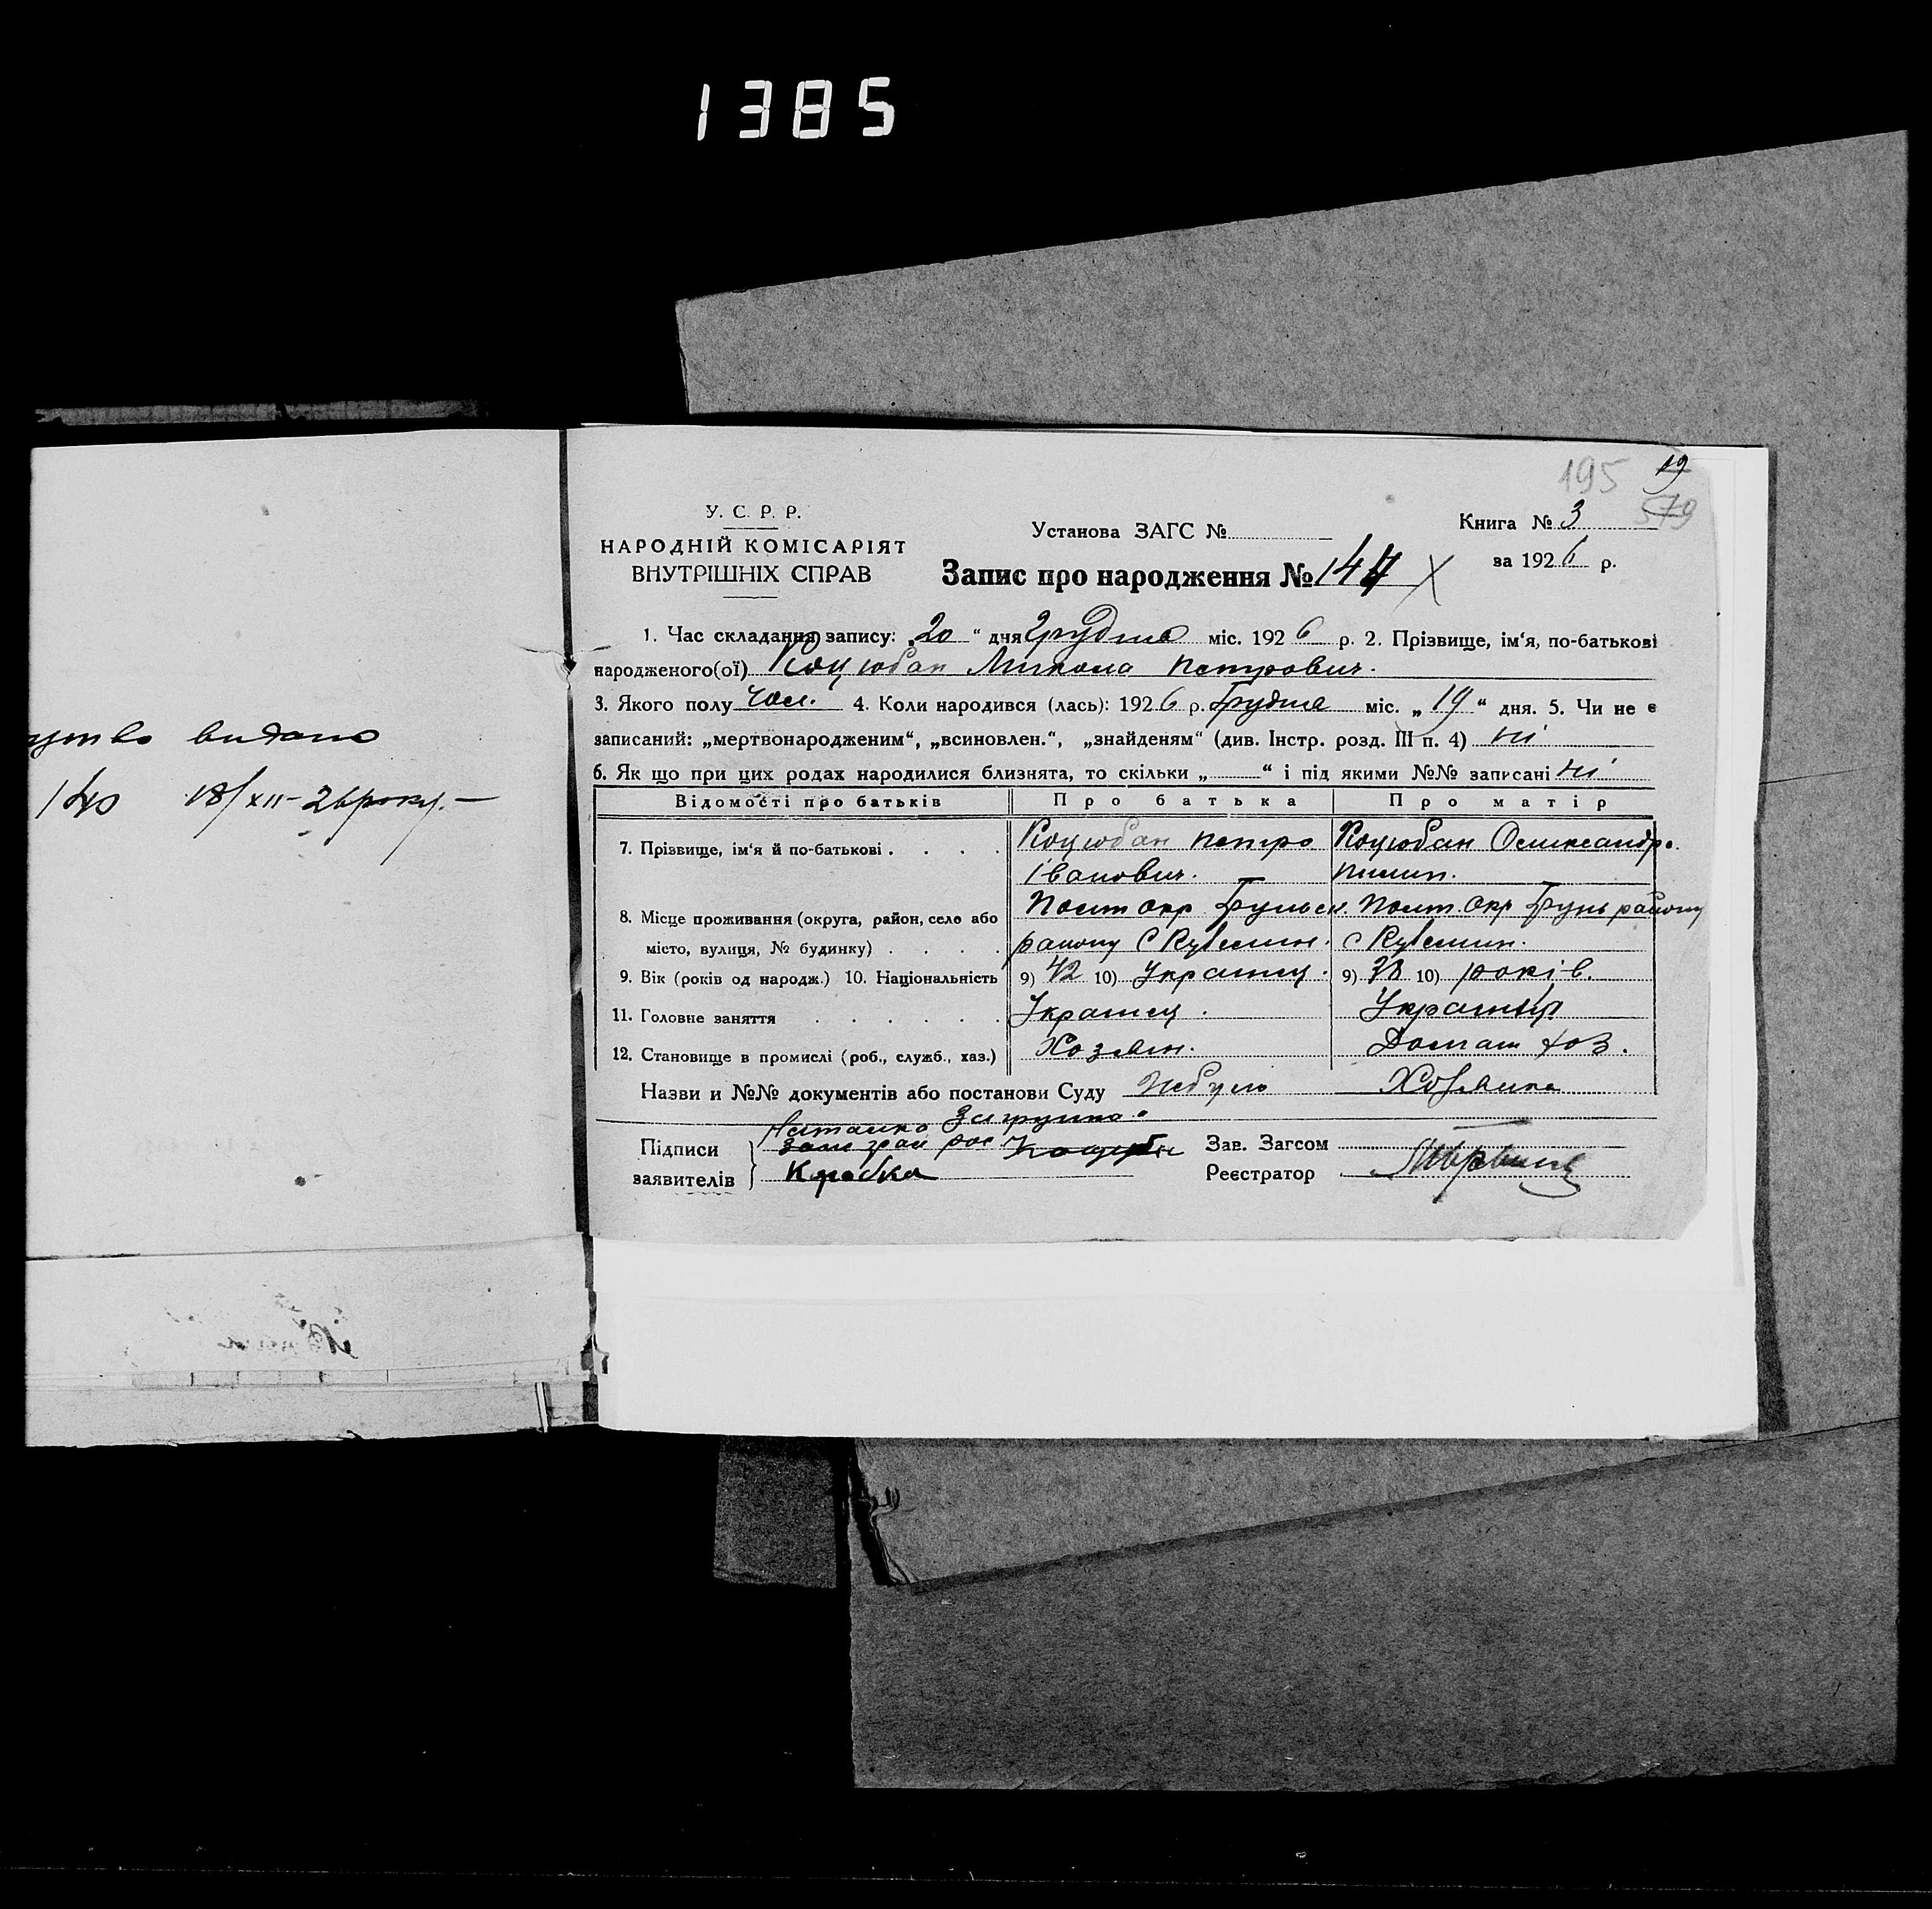 1385
195 19
579
У. С. Р. Р.
НАРОДНІЙ КОМІСАРІЯТ
ВНУТРІШНІХ СПРАВ
Установа ЗАГС №
Книга № 3
за 1926 р.
Запис про народження № 147
1. Час складання запису: „20“ дня Грудня міс. 1926 р. 2. Прізвище, ім‘я, по-батькові
народженого(ої) Коцюбан Микола Петрович.
3. Якого полу чол. 4. Коли народився (лась): 1926 р. Грудня міс. „19“ дня. 5. Чи не є
записаний: „мертвонародженим“, „всиновлен.“, „знайденям“ (див. Інстр. розд. III п. 4) ні
6. Як що при цих родах народилися близнята, то скільки „ “ і під якими №№ записані ні
Відомості про батьків Про батька Про матір
7. Прізвище, ім‘я й по-батькові . . . . Коцюбан Петро Коцюбан Олександр.
Іванович. Пилип.
8. Місце проживання (округа, район, село або Полт окр Груньск. Полт. Окр Грунь району
місто, вулиця, № будинку) . . . . району С с
9. Вік (років од народж.) 10. Національність 9) 42 10) Украинец. 9) 38 10) років.
11. Головне заняття . . . . . . Украинец.
12. Становище в промислі (роб., служб., хаз.) Хозяин. Домаш хоз.
Назви и №№ документів або постанови Суду Хозяика
Підписи
заявителів
Коробка
Зав. Загсом
Реєстратор
видано
140 18/XII-26 року.—